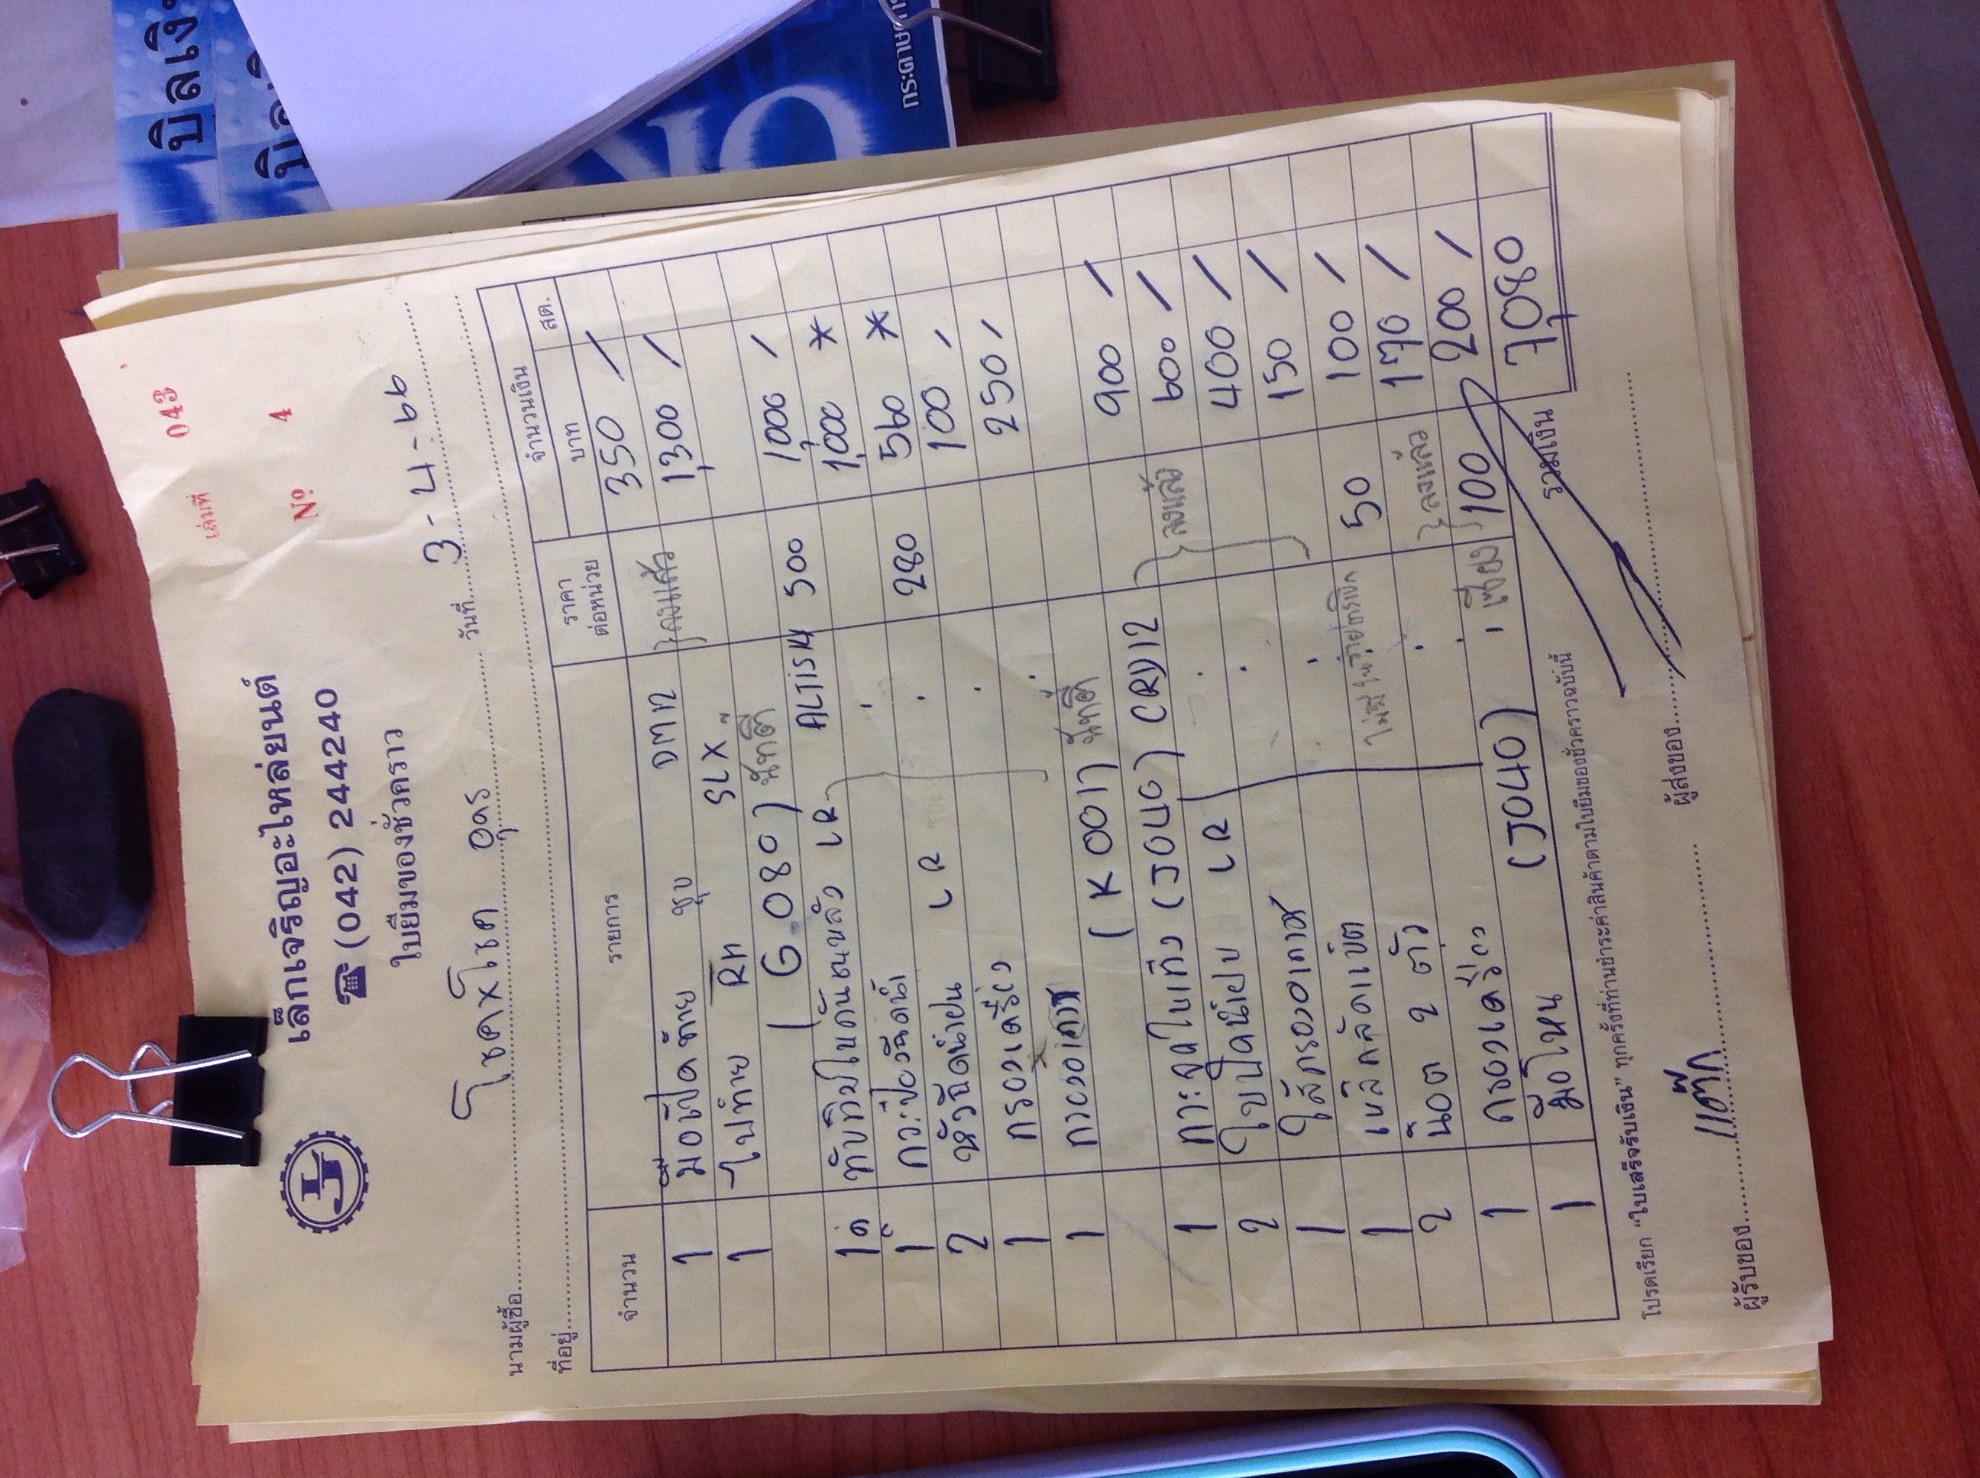 บิลเงิ
บิลเงิ
NO
กระดาษคา
เล่มที่ 043
Nº 4
เล็กเจริญอะไหล่ยนต์
☎ (042) 244240
ใบยืมของชั่วคราว
วันที่ 3-4-66
นามผู้ซื้อ โชคxโชค อุดร
ที่อยู่
จำนวน รายการ ราคาต่อหน่วย จำนวนเงิน
บาท สต.
1 มือเปิดท้าย ชุบ DMN } ลงแล้ว 350 /
1 ไฟท้าย RH SLX 1,300 /
(G.080) นัทตี
1 ทับทิมในกันชนหลัง LR ALTIS14 500 1,000 /
1 1,000 *
2 หัวฉีดน้ำฝน LR 280 560 *
1 กรองเครื่อง 100 /
1 250 /
(K0017) นัทตี
1 (JOUG) CRD12 900 /
2 LR } ลงแล้ว 600 /
1 ไส้กรองอากาศ 400 /
1 เข็มกลัดเบ็ต 150 /
2 น๊อต 2 ตัว 50 100 /
1 กรองเครื่อง } ลงแล้ว 170 /
1 มือโหน (JOUO) 100 200 /
รวมเงิน 7,080
โปรดเรียก “ใบเสร็จรับเงิน” ทุกครั้งที่ท่านชำระค่าสินค้าตามใบยืมของชั่วคราวฉบับนี้
ผู้รับของ แต๊ก ผู้ส่งของ